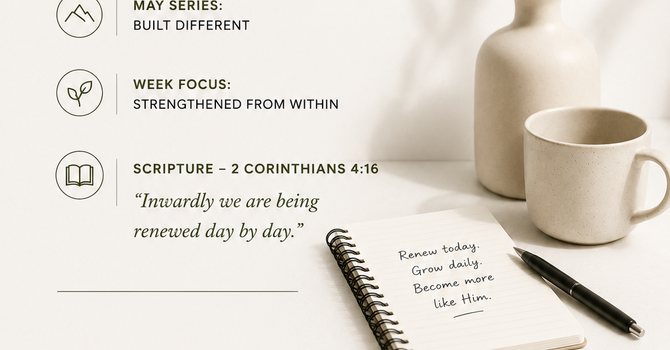 MAY SERIES:
BUILT DIFFERENT
WEEK FOCUS:
STRENGTHENED FROM WITHIN
SCRIPTURE – 2 CORINTHIANS 4:16
“Inwardly we are being
renewed day by day.”
Renew today.
Grow daily.
Become more
like Him.